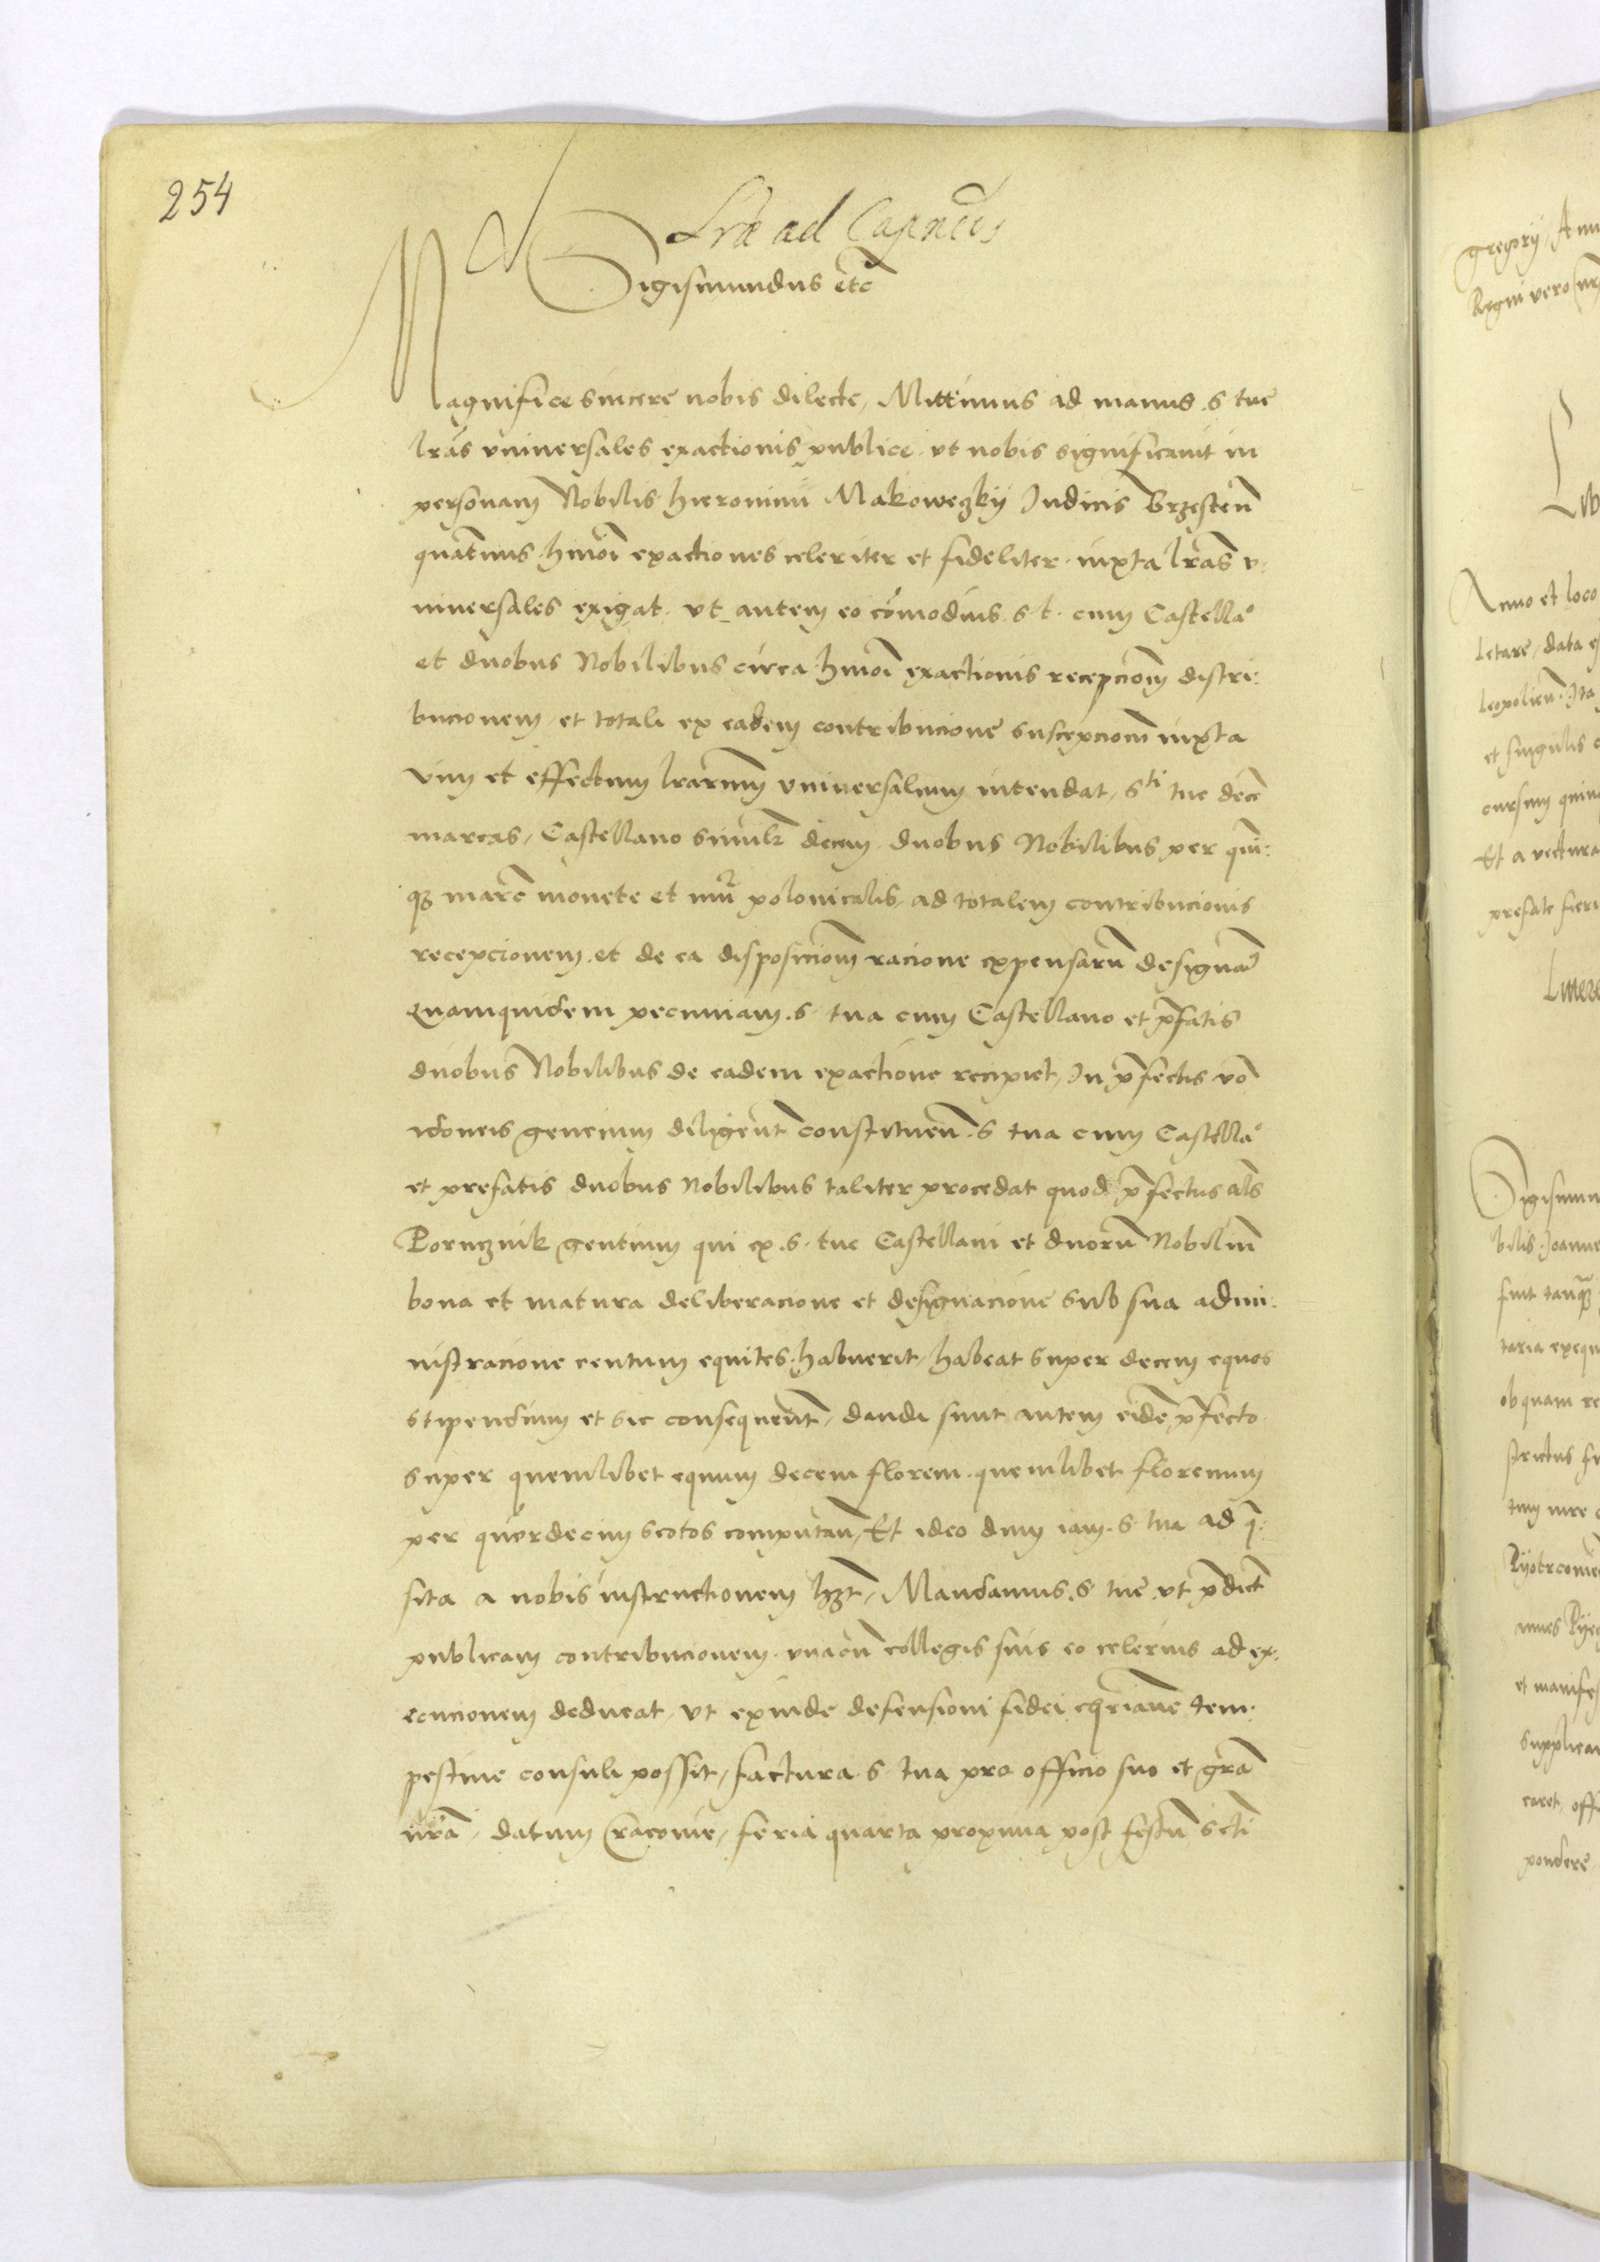 254
Lrae ad Capneos
Sigismundus etc
Magnifice sincere nobis dilecte, Mittimus ad manus s tue
lras universales exactionis publice ut nobis significavit in
personam Nobilis Hieronimi Makoweczkij Judicis Brzesten
quatinus hmoi exactiones celeriter et fideliter iuxta lras v:
niversales exigat. ut autem eo comodius s. t. cum Castella°
et duobus Nobilibus circa hmoi exactionis recepcionem distri:
bucionem et totali ex eadem contribucione suscepcionem iuxta
vim et effectum lrarum universalium intendat, s^ti tue dece
marcas, Castellano simulr decem duobus Nobilibus per quin:
q3 marc monete et nu^r polonicalis, ad totalem contribucionis
recepcionem et de ea disposicionem racione expensaru designam
Quamquidem pecuniam s tua cum Castellano et pfatis
duobus Nobilibus de eadem exactione recipiet, In pfectis vo
idoneis gencium diligent constituen s tua cum Castella°
et prefatis duobus Nobilibus taliter procedat quod pfectus als
Poruznik gentium qui ex s tue Castellani et duoru Nobilium
bona et matura deliberacione et designacione sub sua admi:
nistracione centum equites habuerit, habeat super decem equos
stipendium et sic consequent, dandi sunt autem eide pfecto
super quemlibet equum decem floren. quemlibet florenum
per quordecim scotos computan, Et ideo dum iam s tua ad q:
sita a nobis instructionem hzt, Mandamus s tue ut pdict
publicam contribucionem unacu collegis suis eo celerius ad ex:
ecucionem deducat, ut exinde defensioni fidei chriane tem:
pestive consuli possit, factura s tua pro officio suo et gra
nra, datum Cracovie, feria quarta proxima post festu scti